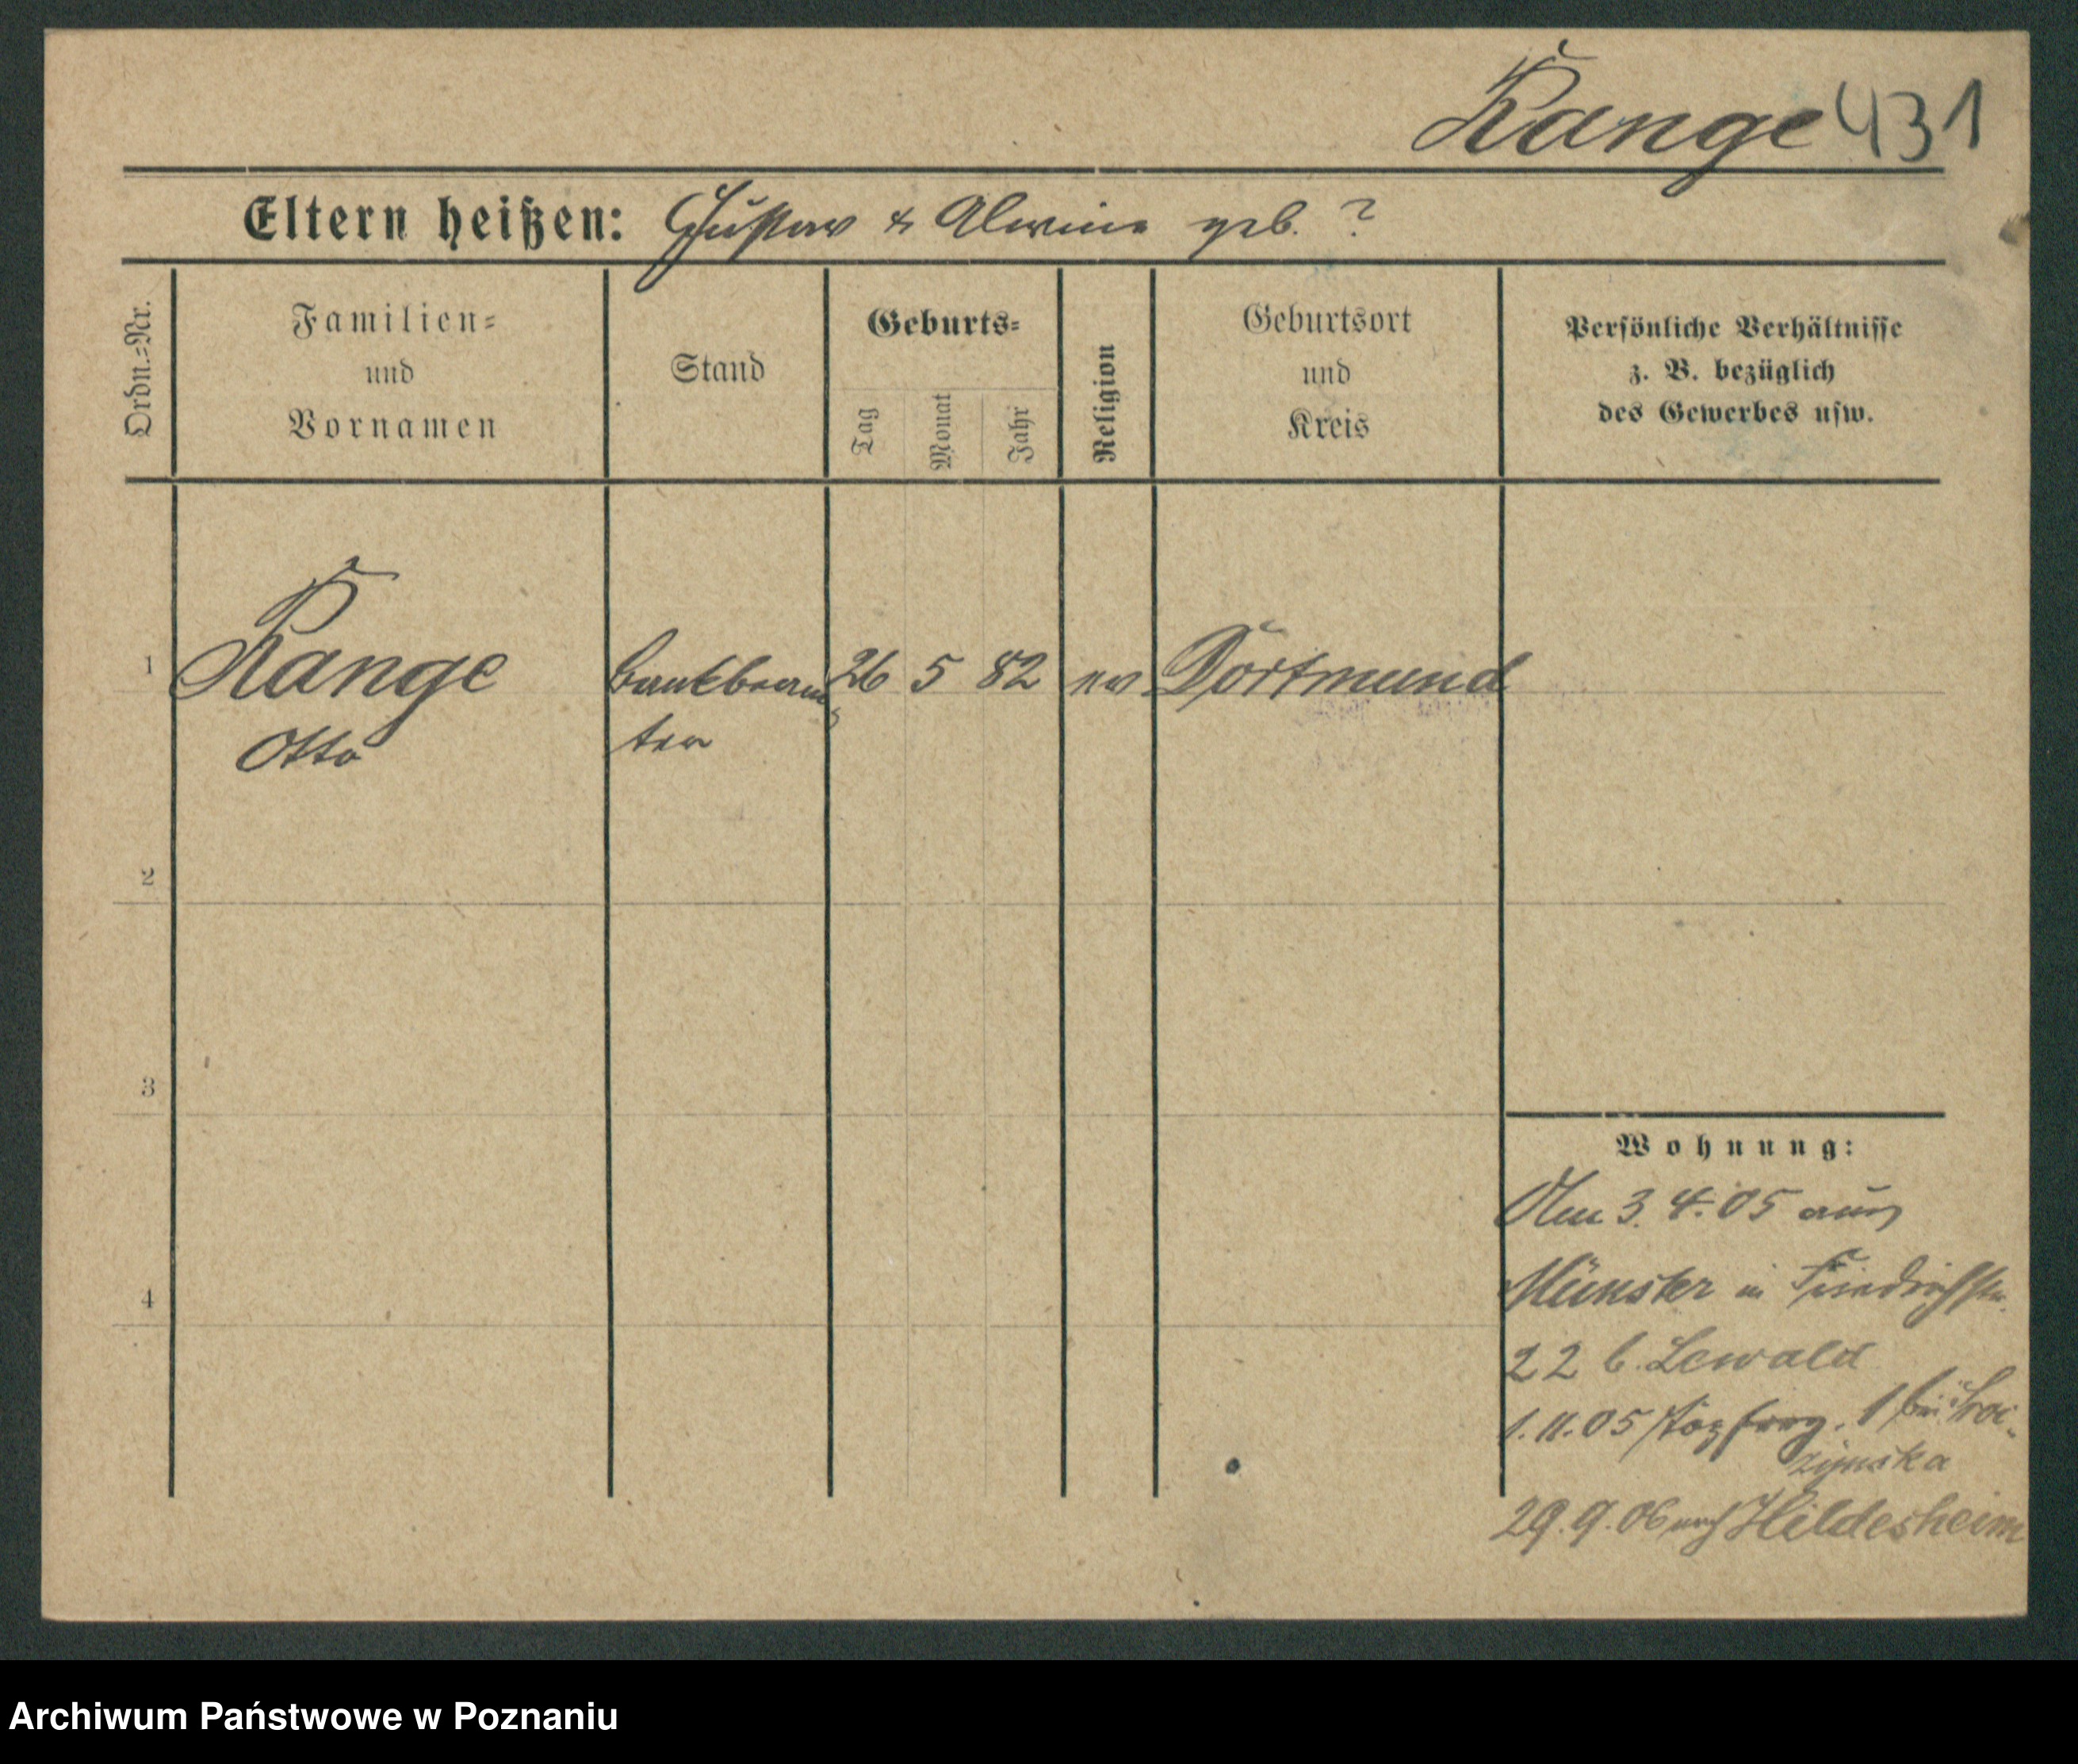 Range 431
Eltern heißen: Gustav & Alwine geb. ?
Ordn.=Nr.
Familien=
und
Vornamen
Stand
Geburts=
Tag
Monat
Jahr
Religion
Geburtsort
und
Kreis
Persönliche Verhältnisse
z. B. bezüglich
des Gewerbes usw.
1
Range
Otto
Bankbeam
ter
26 5 82
ev
Dortmund
2
3
4
Wohnung:
3. 4. 05 aus
Münster in Friedrichstr.
22 b. Lewald
1.11.05 1 bei
zynska
29.9.06 nach Hildesheim
Archiwum Państwowe w Poznaniu